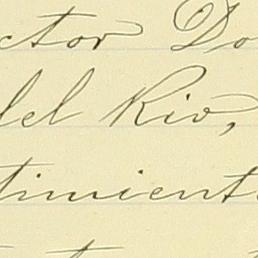 ctor Do
del Rio,
timient